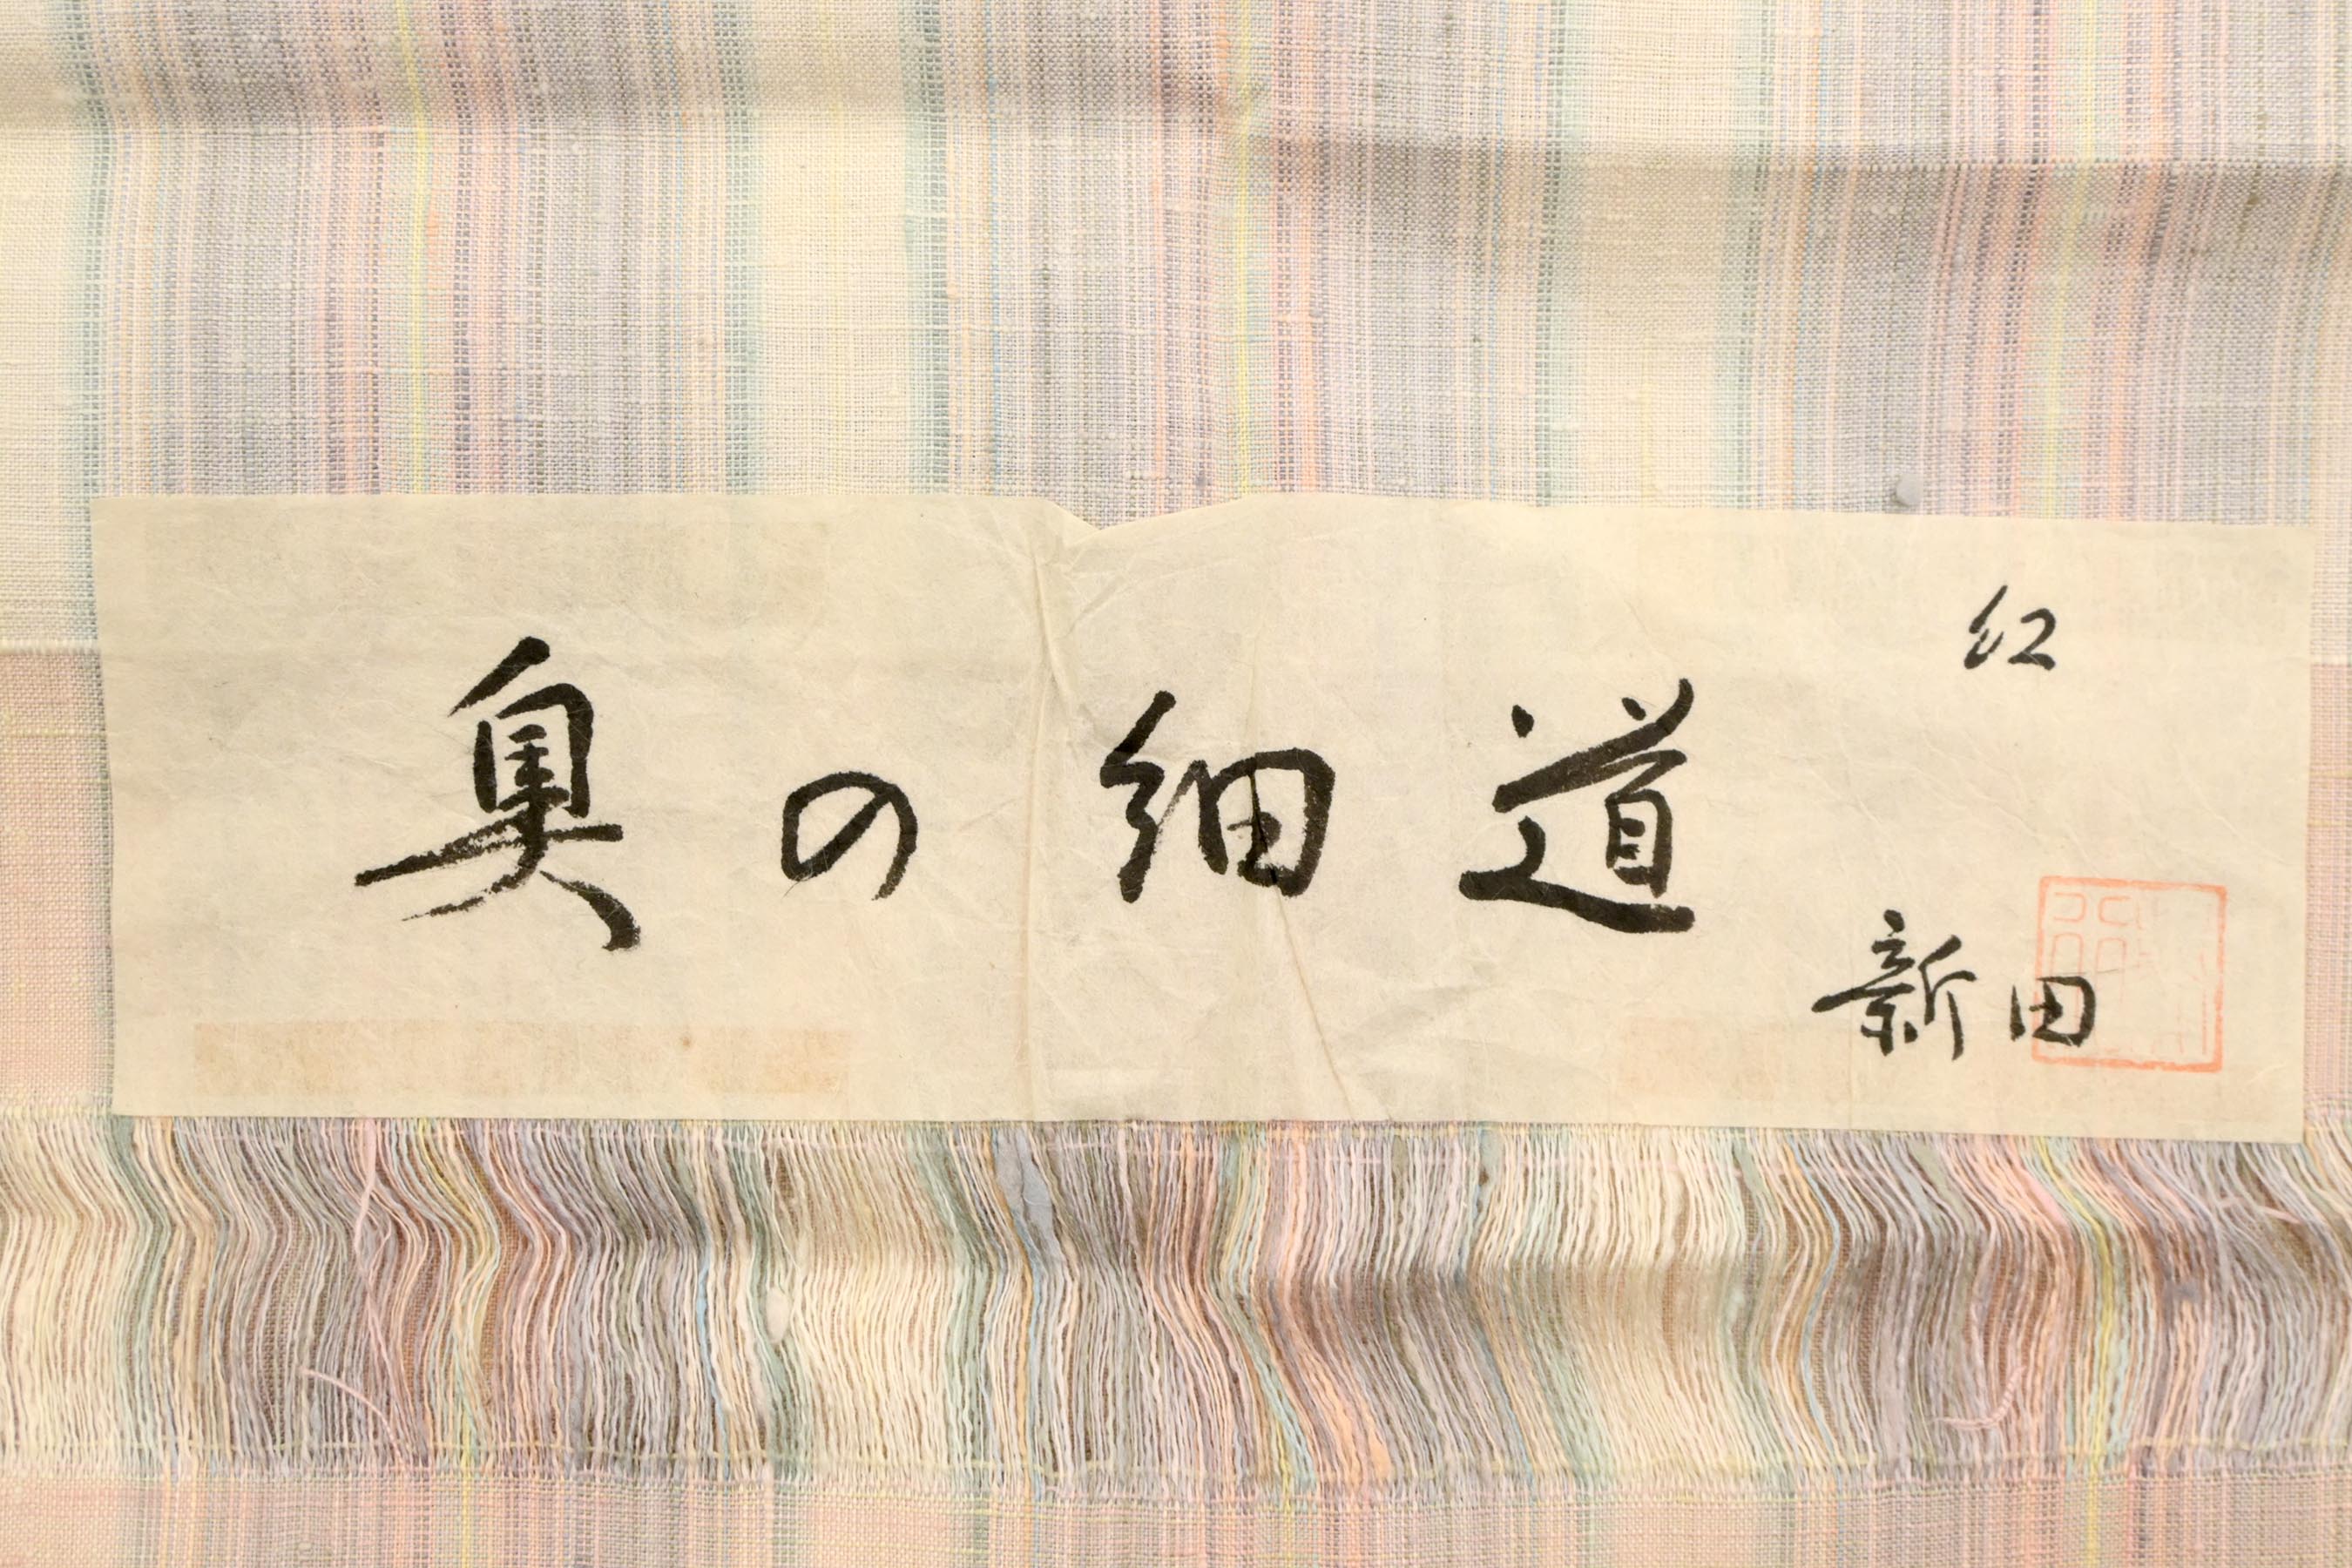 奥の細道
紅
新田